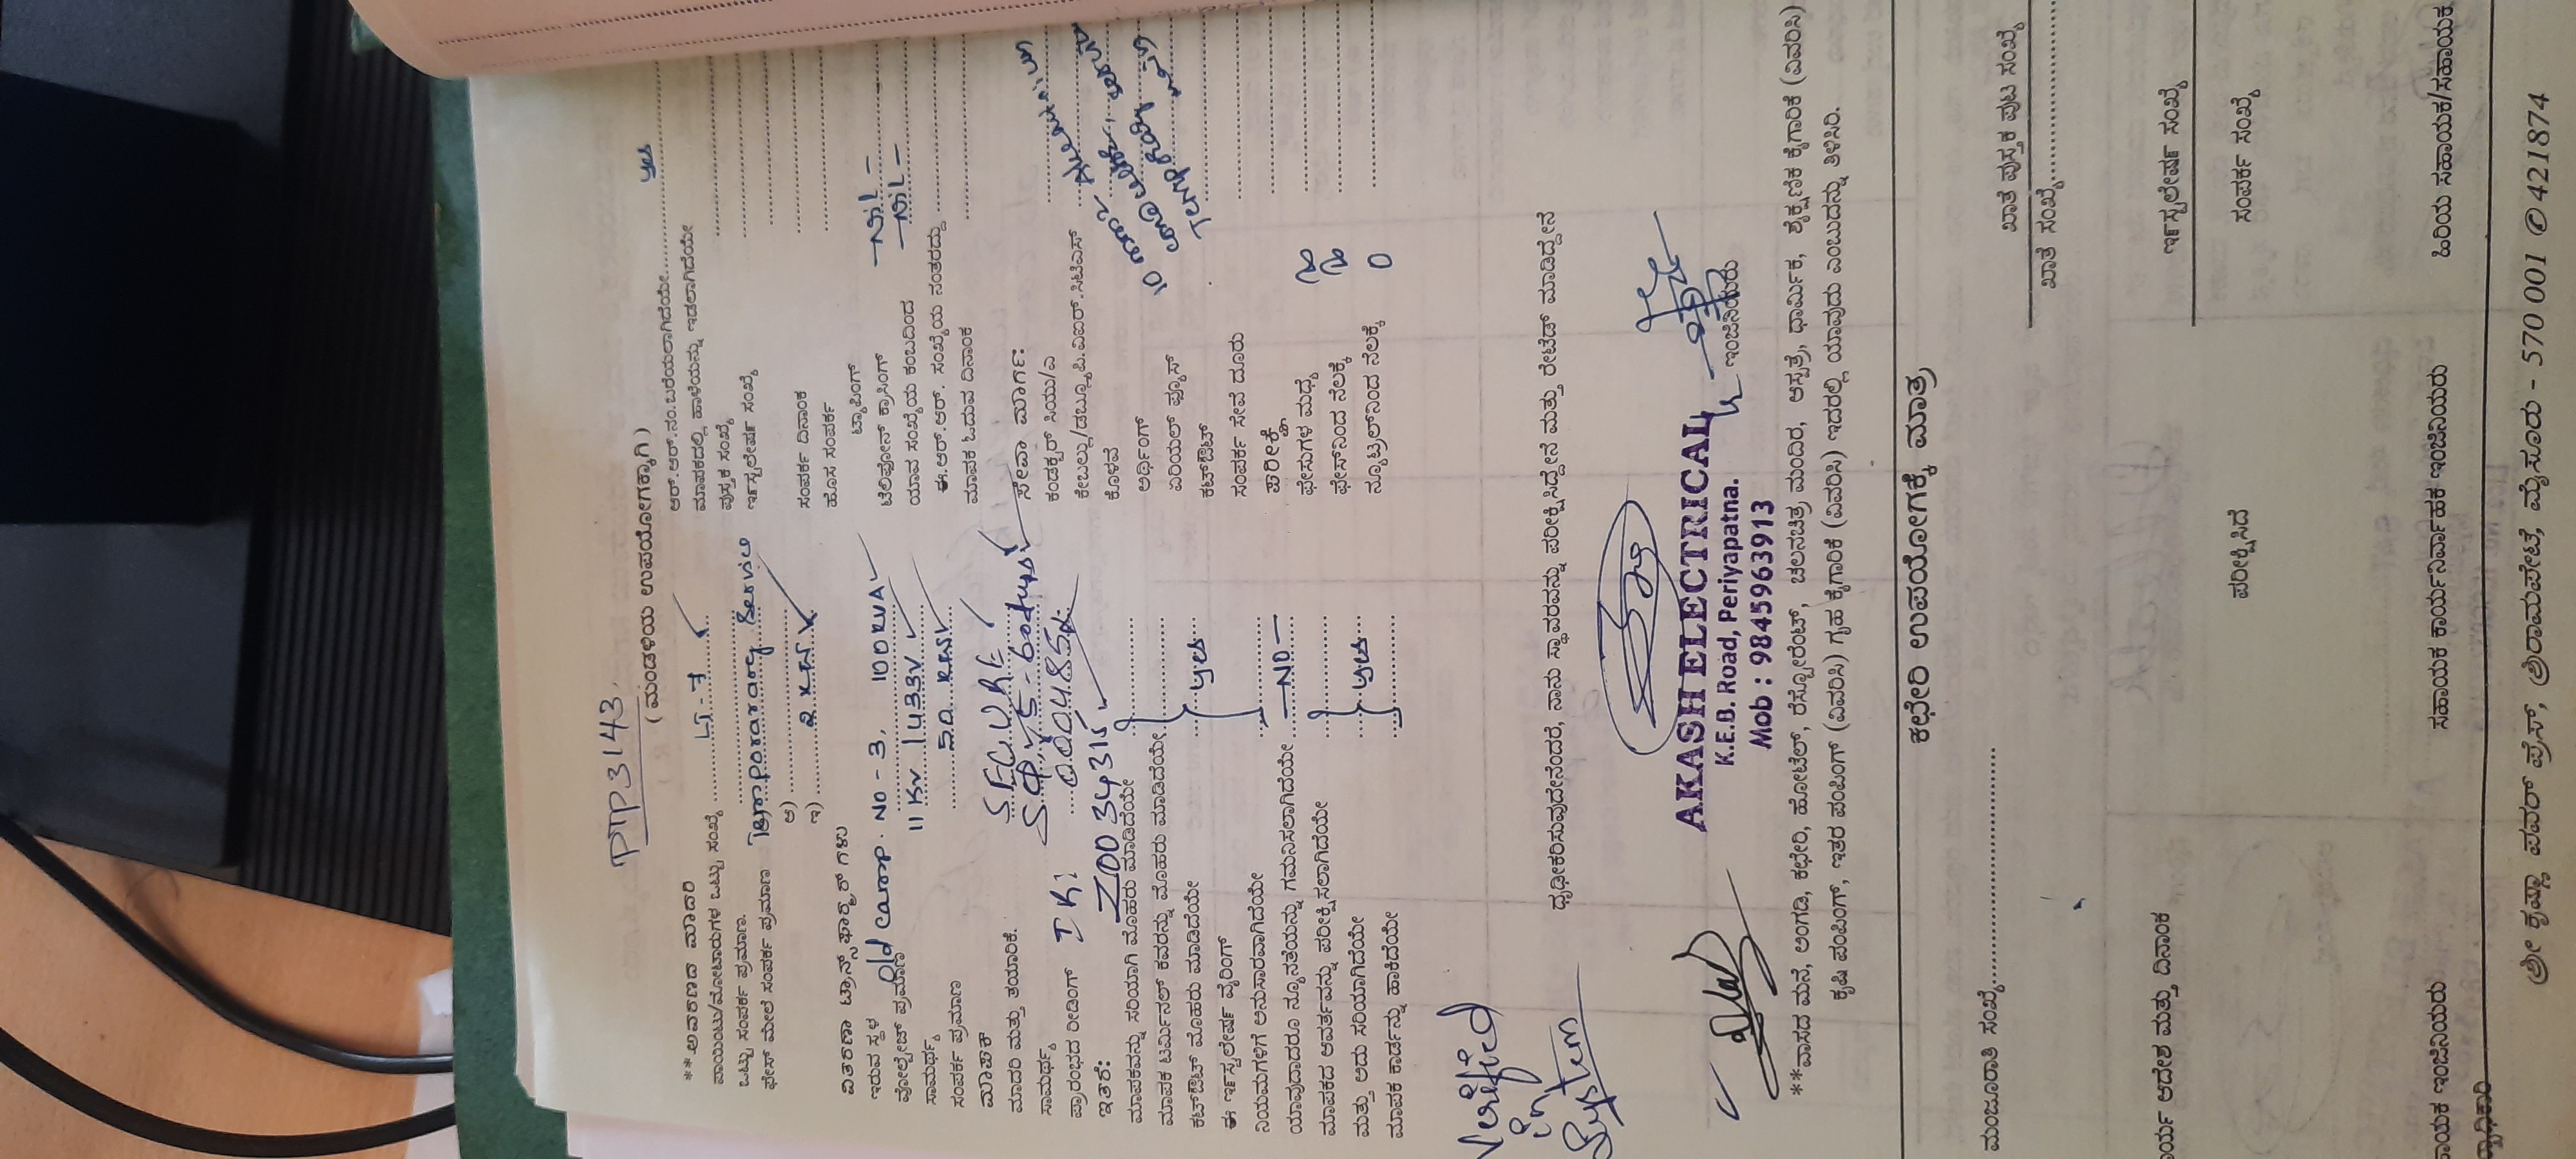 PTP3143
( ಮಂಡಳಿಯ ಉಪಯೋಗಕ್ಕಾಗಿ )
**ಆವರಣದ ಮಾದರಿ
ಪಾಯಿಂಟು/ಮೋಟಾರುಗಳ ಒಟ್ಟು ಸಂಖ್ಯೆ LT-7
ಒಟ್ಟು ಸಂಪರ್ಕ ಪ್ರಮಾಣ.
ಫೇಸ್ ಮೇಲೆ ಸಂಪರ್ಕ ಪ್ರಮಾಣ Temporarary Service
ಅ)
ಇ) 2 KW
ವಿತರಣಾ ಟ್ರಾನ್ಸ್‌ಫಾರ್ಮ್ಮರ್‌ಗಳು
ಇರುವ ಸ್ಥಳ Old Camp. NO-3, 100 KVA
ವೋಲ್ಟೇಜ್ ಪ್ರಮಾಣ 11 KV 1433V
ಸಾಮರ್ಥ್ಯ
ಸಂಪರ್ಕ ಪ್ರಮಾಣ 50 KW
ಮಾಪಕ
ಮಾದರಿ ಮತ್ತು ತಯಾರಿಕೆ. SECURE
ಸಾಮರ್ಥ್ಯ
ಪ್ರಾರಂಭದ ರೀಡಿಂಗ್ IR: 0.0004854
ಇತರೆ: Z100 34315
ಮಾಪಕವನ್ನು ಸರಿಯಾಗಿ ಮೊಹರು ಮಾಡಿದೆಯೇ
ಮಾಪಕ ಟರ್ಮಿನಲ್ ಕವರನ್ನು ಮೊಹರು ಮಾಡಿದೆಯೇ
ಕಟ್‌ಔಟ್ ಮೊಹರು ಮಾಡಿದೆಯೇ yes
ಈ ಇನ್ಸ್ಟಲೇಷನ್ ವೈರಿಂಗ್
ನಿಯಮಗಳಿಗೆ ಅನುಸಾರವಾಗಿದೆಯೇ
ಯಾವುದಾದರೂ ನ್ಯೂನತೆಯನ್ನು ಗಮನಿಸಲಾಗಿದೆಯೇ —NO—
ಮಾಪಕದ ಆವರ್ತವನ್ನು ಪರೀಕ್ಷಿಸಲಾಗಿದೆಯೇ
ಮತ್ತು ಅದು ಸರಿಯಾಗಿದೆಯೇ yes
ಮಾಪಕ ಕಾರ್ಡನ್ನು ಹಾಕಿದೆಯೇ
ಆರ್.ಆರ್.ನಂ.ಬರೆಯಲಾಗಿದೆಯೇ yes
ಮಾಪಕದಲ್ಲಿ ಹಾಳೆಯನ್ನು ಇಡಲಾಗಿದೆಯೇ
ಪುಸ್ತಕ ಸಂಖ್ಯೆ
ಇನ್ಸ್ಟಲೇಷನ್ ಸಂಖ್ಯೆ
ಸಂಪರ್ಕ ದಿನಾಂಕ
ಹೊಸ ಸಂಪರ್ಕ
ಟ್ಯಾಪಿಂಗ್
ಟೆಲಿಫೋನ್ ಕ್ರಾಸಿಂಗ್ —Nil—
ಯಾವ ಸಂಖ್ಯೆಯ ಕಂಬದಿಂದ —Nil—
ಈ.ಆರ್.ಆರ್. ಸಂಖ್ಯೆಯ ನಂತರದ್ದು
ಮಾಪಕ ಓದುವ ದಿನಾಂಕ
ಸೇವಾ ಮಾರ್ಗ:
ಕಂಡಕ್ಟರ್ ಸಿಯು/ಎ
ಕೇಬಲ್ಲು/ಡಬ್ಲ್ಯೂಪಿ.ಐಐರ್.ಸಿಟಿಎಸ್
ಕೊಳವೆ
ಅರ್ಥಿಂಗ್
ಏರಿಯಲ್ ಫ್ಯೂಸ್
ಕಟ್‌ಔಟ್
ಸಂಪರ್ಕ ಸೇವೆ ದೂರು
ಪರೀಕ್ಷೆ
ಫೇಸುಗಳ ಮಧ್ಯೆ
ಫೇಸ್‌ನಿಂದ ನೆಲಕ್ಕೆ
ನ್ಯೂಟ್ರಲ್‌ನಿಂದ ನೆಲಕ್ಕೆ 0
Verified
in
System
ಧೃಢೀಕರಿಸುವುದೇನೆಂದರೆ, ನಾನು ಸ್ಥಾವರವನ್ನು ಪರೀಕ್ಷಿಸಿದ್ದೇನೆ ಮತ್ತು ರೇಟೆಡ್ ಮಾಡಿದ್ದೇನೆ
AKASH ELECTRICAL
K.E.B. Road, Periyapatna.
Mob : 9845963913
ಇಂಜಿನಿಯರು
**ವಾಸದ ಮನೆ, ಅಂಗಡಿ, ಕಛೇರಿ, ಹೋಟೆಲ್, ರೆಸ್ಟೋರೆಂಟ್, ಚಲನಚಿತ್ರ ಮಂದಿರ, ಆಸ್ಪತ್ರೆ, ಧಾರ್ಮಿಕ, ಶೈಕ್ಷಣಿಕ ಕೈಗಾರಿಕೆ (ವಿವರಿಸಿ)
ಕೃಷಿ ಪಂಪಿಂಗ್, ಇತರ ಪಂಪಿಂಗ್ (ವಿವರಿಸಿ) ಗೃಹ ಕೈಗಾರಿಕೆ (ವಿವರಿಸಿ) ಇದರಲ್ಲಿ ಯಾವುದು ಎಂಬುದನ್ನು ತಿಳಿಸಿರಿ.
ಕಛೇರಿ ಉಪಯೋಗಕ್ಕೆ ಮಾತ್ರ
ಮಂಜೂರಾತಿ ಸಂಖ್ಯೆ
ಖಾತೆ ಪುಸ್ತಕ ಪುಟ ಸಂಖ್ಯೆ
ಖಾತೆ ಸಂಖ್ಯೆ
ರ್ಯ ಆದೇಶ ಮತ್ತು ದಿನಾಂಕ
ಇನ್ಸ್ಟಲೇಷನ್ ಸಂಖ್ಯೆ
ಪರೀಕ್ಷಿಸಿದೆ
ಸಂಪರ್ಕ ಸಂಖ್ಯೆ
ಾಯಕ ಇಂಜಿನಿಯರು
ಸಹಾಯಕ ಕಾರ್ಯನಿರ್ವಾಹಕ ಇಂಜಿನಿಯರು
ಹಿರಿಯ ಸಹಾಯಕ/ಸಹಾಯಕ
ಶ್ರೀ ಕೃಷ್ಣಾ ಪವರ್ ಪ್ರೆಸ್, ಶ್ರೀರಾಮಪೇಟೆ, ಮೈಸೂರು - 570 001 ✆ 421874